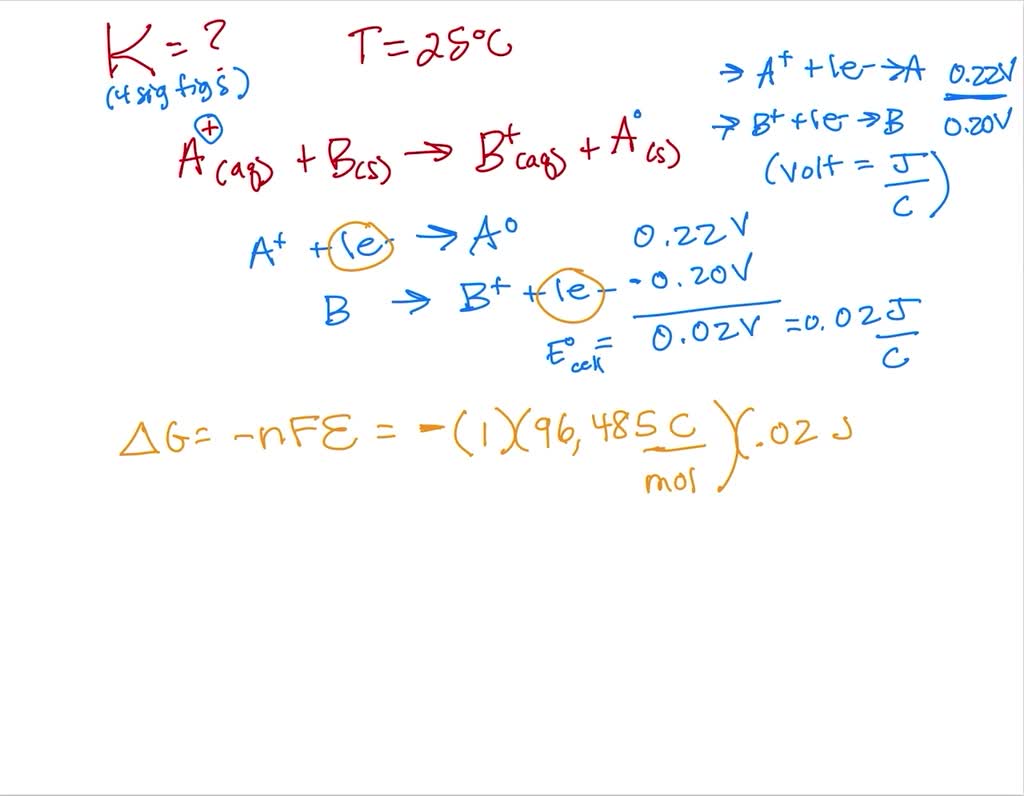 K = ? T = 25°C
(4 sig figs)
→ A⁺ + 1e⁻ → A 0.22V
→ B⁺ + 1e⁻ → B 0.20V
(volt = J/C)
A⁺(aq) + B(s) → B⁺(aq) + A°(s)
A⁺ + 1e⁻ → A⁰ 0.22V
B → B⁺ + 1e⁻ -0.20V
E°cell = 0.02V = 0.02 J/C
ΔG = -nFE = -(1)(96,485 C/mol)(.02 J